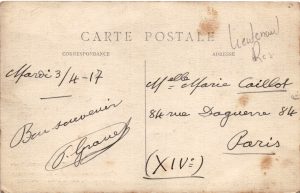 CARTE POSTALE
Lieutenant
CORRESPONDANCE
ADRESSE
Mardi 3/4-17
Melle Marie Caillot
84 rue Daguerre 84
Paris
(XIVe)
Bon souvenir